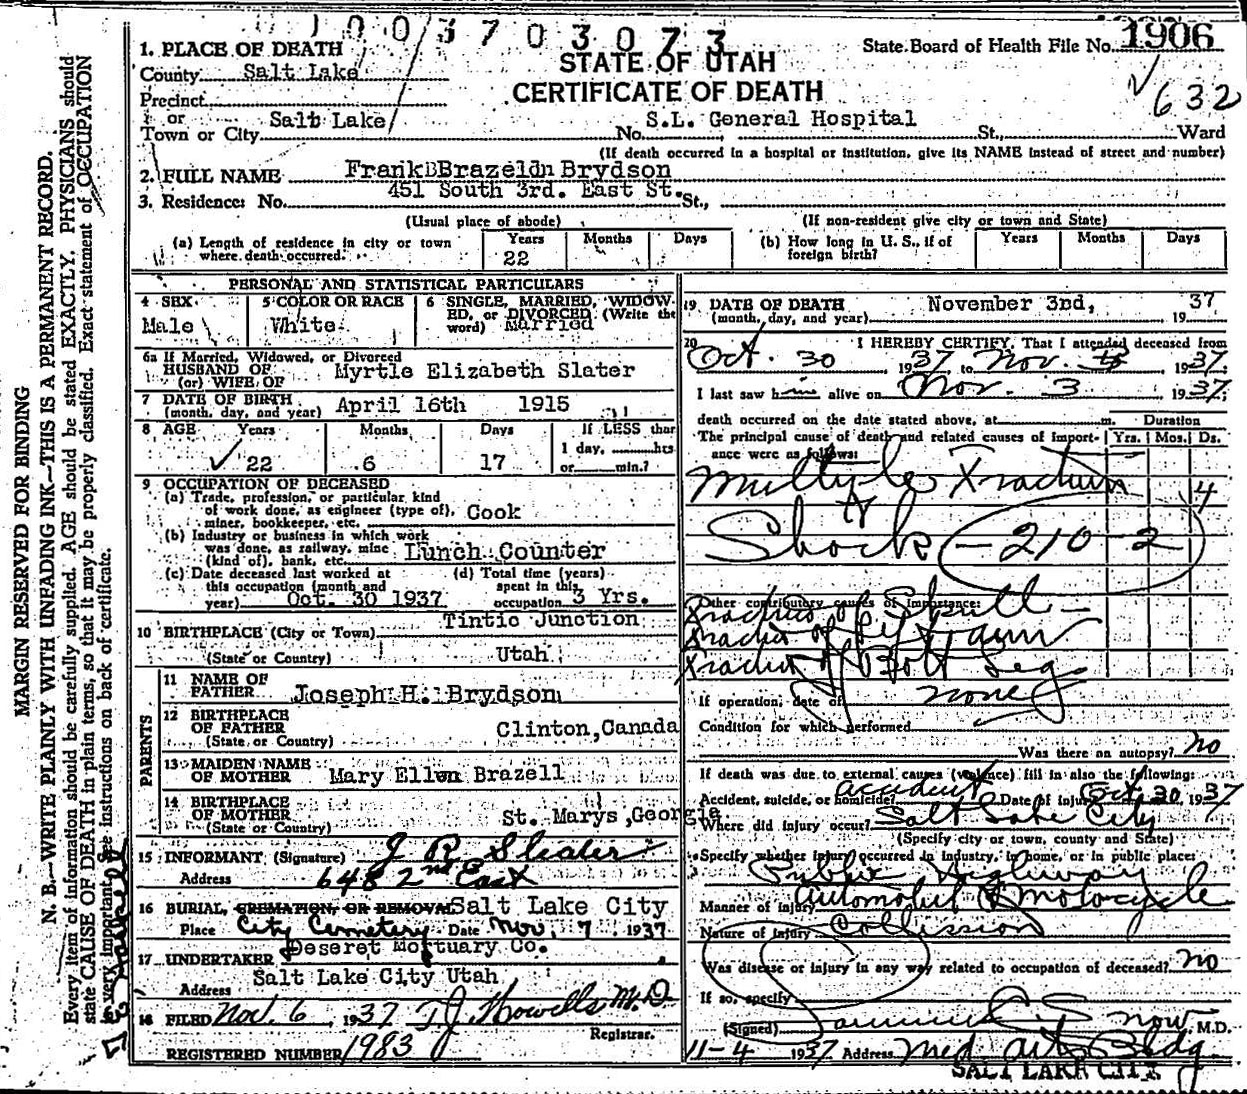 1003703073
1. PLACE OF DEATH
County Salt Lake
Precinct
or
Town or City Salt Lake
STATE OF UTAH
CERTIFICATE OF DEATH
State Board of Health File No. 1906
632
No. S.L. General Hospital St., Ward
(If death occurred in a hospital or institution, give its NAME instead of street and number)
2. FULL NAME Frank Brazeldn Brydson
3. Residence: No. 451 South 3rd. East St. St.,
(Usual place of abode) (If non-resident give city or town and State)
(a) Length of residence in city or town where death occurred. Years 22 Months Days
(b) How long in U. S., if of foreign birth? Years Months Days
PERSONAL AND STATISTICAL PARTICULARS
4 SEX Male
5 COLOR OR RACE White
6 SINGLE, MARRIED, WIDOWED, or DIVORCED (Write the word) Married
6a If Married, Widowed, or Divorced
HUSBAND OF
(or) WIFE OF Myrtle Elizabeth Slater
7 DATE OF BIRTH
(month, day, and year) April 16th 1915
8 AGE Years Months Days If LESS than
22 6 17 1 day, hrs
or min.?
9 OCCUPATION OF DECEASED
(a) Trade, profession, or particular kind
of work done, as engineer (type of),
miner, bookkeeper, etc. Cook
(b) Industry or business in which work
was done, as railway, mine
(kind of), bank, etc. Lunch Counter
(c) Date deceased last worked at
this occupation (month and
year) Oct. 30 1937
(d) Total time (years)
spent in this
occupation 3 Yrs.
10 BIRTHPLACE (City or Town) Tintic Junction
(State or Country) Utah
PARENTS
11 NAME OF
FATHER Joseph H. Brydson
12 BIRTHPLACE
OF FATHER Clinton,Canada
(State or Country)
13 MAIDEN NAME
OF MOTHER Mary Ellen Brazell
14 BIRTHPLACE
OF MOTHER St. Marys ,Georgia
(State or Country)
15 INFORMANT (Signature) J R Slater
Address 648 2nd East
16 BURIAL, CREMATION, OR REMOVAL Salt Lake City
Place City Cemetery Date Nov, 7, 1937
17 UNDERTAKER Deseret Mortuary Co.
Address Salt Lake City Utah
18 FILED Nov. 6, 1937 T.J. Howells M.D.
Registrar.
REGISTERED NUMBER 1983
19 DATE OF DEATH
(month, day, and year) November 3rd, 1937
20 I HEREBY CERTIFY, That I attended deceased from
Oct. 30 1937 to Nov. 3 1937
I last saw him alive on Nov. 3 1937;
death occurred on the date stated above, at m. Duration
The principal cause of death and related causes of importance were as follows: Yrs. Mos. Ds.
Multiple Fracture 4
Shock 210-2
Other contributory causes of importance:
Fracture of Skull
Fracture of
Fracture of Both Leg
If operation, date of none
Condition for which performed
Was there an autopsy? No
If death was due to external causes (violence) fill in also the following:
Accident, suicide, or homicide? accident Date of injury Oct 30 1937
Where did injury occur? Salt Lake City
(Specify city or town, county and State)
Specify whether injury occurred in industry, in home, or in public place:
Public Highway
Manner of injury Automobile & Motorcycle
Nature of Injury Collission
Was disease or injury in any way related to occupation of deceased? No
If so, specify
(Signed) M.D.
11-4 1937 Address Med Arts Bldg
SALT LAKE CITY
MARGIN RESERVED FOR BINDING
N. B.—WRITE PLAINLY WITH UNFADING INK—THIS IS A PERMANENT RECORD.
Every item of information should be carefully supplied. AGE should be stated EXACTLY. PHYSICIANS should
state CAUSE OF DEATH in plain terms, so that it may be properly classified. Exact statement of OCCUPATION
is very important. See instructions on back of certificate.